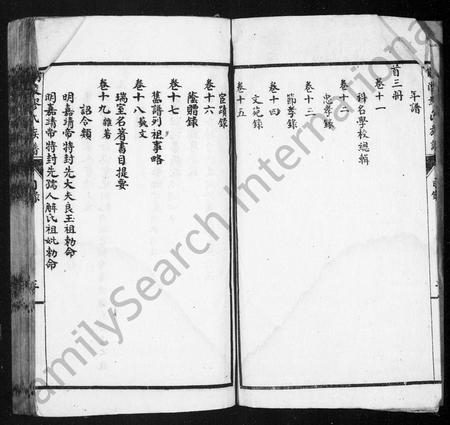 年譜
首三冊
卷十一
科名學校總輯
卷十二
忠孝錄
卷十三
節孝錄
卷十四
文苑錄
卷十五
宦蹟錄
卷十六
蔭贈錄
卷十七
舊譜列祖事略
卷十八藝文
瑞室名著書目提要
卷十九雜著
詔令類
明嘉靖帝特封先大夫良玉祖勅命
明嘉靖帝特封先孺人解氏祖妣勅命
FamilySearch International